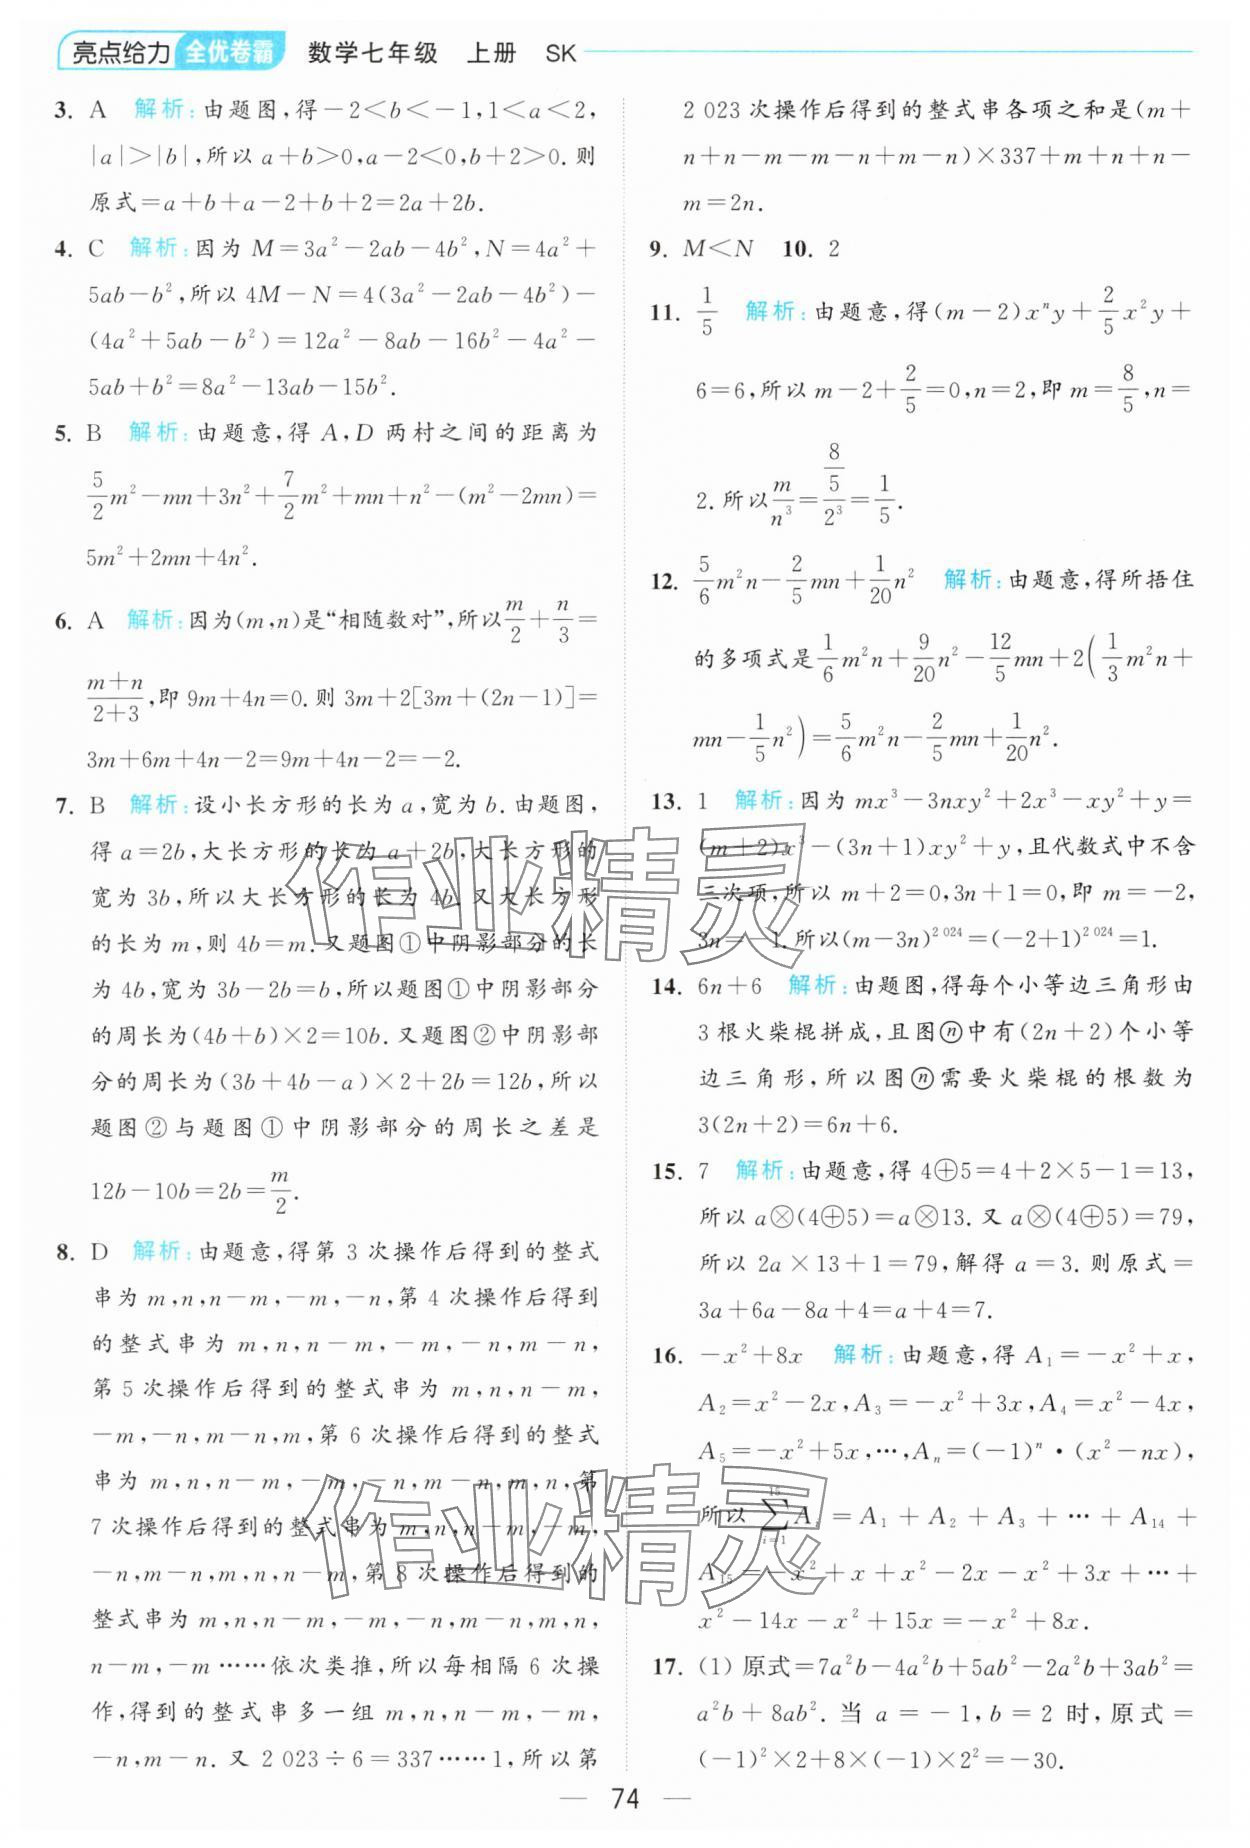 亮点给力 全优卷霸 数学七年级 上册 SK
3. A 解析:由题图,得-2<b<-1,1<a<2,
|a|>|b|,所以a+b>0,a-2<0,b+2>0.则
原式=a+b+a-2+b+2=2a+2b.
4. C 解析:因为M=3a²-2ab-4b²,N=4a²+
5ab-b²,所以4M-N=4(3a²-2ab-4b²)-
(4a²+5ab-b²)=12a²-8ab-16b²-4a²-
5ab+b²=8a²-13ab-15b².
5. B 解析:由题意,得A,D两村之间的距离为
5/2m²-mn+3n²+7/2m²+mn+n²-(m²-2mn)=
5m²+2mn+4n².
6. A 解析:因为(m,n)是“相随数对”,所以m/2+n/3=
(m+n)/(2+3),即9m+4n=0.则3m+2[3m+(2n-1)]=
3m+6m+4n-2=9m+4n-2=-2.
7. B 解析:设小长方形的长为a,宽为b.由题图,
得a=2b,大长方形的长为a+2b,大长方形的
宽为3b,所以大长方形的长为4b.又大长方形
的长为m,则4b=m.又题图①中阴影部分的长
为4b,宽为3b-2b=b,所以题图①中阴影部分
的周长为(4b+b)×2=10b.又题图②中阴影部
分的周长为(3b+4b-a)×2+2b=12b,所以
题图②与题图①中阴影部分的周长之差是
12b-10b=2b=m/2.
8. D 解析:由题意,得第3次操作后得到的整式
串为m,n,n-m,-m,-n,第4次操作后得到
的整式串为m,n,n-m,-m,-n,m-n,
第5次操作后得到的整式串为m,n,n-m,
-m,-n,m-n,m,第6次操作后得到的整式
串为m,n,n-m,-m,-n,m-n,m,n,第
7次操作后得到的整式串为m,n,n-m,-m,
-n,m-n,m,n,n-m,第8次操作后得到的
整式串为m,n,n-m,-m,-n,m-n,m,n,
n-m,-m……依次类推,所以每相隔6次操
作,得到的整式串多一组m,n,n-m,-m,
-n,m-n.又2 023÷6=337……1,所以第
2 023次操作后得到的整式串各项之和是(m+
n+n-m-m-n+m-n)×337+m+n+n-
m=2n.
9. M<N 10. 2
11. 1/5 解析:由题意,得(m-2)xⁿy+2/5x²y+
6=6,所以m-2+2/5=0,n=2,即m=8/5,n=
2.所以m/n³=(8/5)/2³=1/5.
12. 5/6m²n-2/5mn+1/20n² 解析:由题意,得所捂住
的多项式是1/6m²n+9/20n²-12/5mn+2(1/3m²n+
mn-1/5n²)=5/6m²n-2/5mn+1/20n².
13. 1 解析:因为mx³-3nxy²+2x³-xy²+y=
(m+2)x³-(3n+1)xy²+y,且代数式中不含
三次项,所以m+2=0,3n+1=0,即m=-2,
3n=-1.所以(m-3n)^2 024=(-2+1)^2 024=1.
14. 6n+6 解析:由题图,得每个小等边三角形由
3根火柴棍拼成,且图ⓝ中有(2n+2)个小等
边三角形,所以图ⓝ需要火柴棍的根数为
3(2n+2)=6n+6.
15. 7 解析:由题意,得4⊕5=4+2×5-1=13,
所以a⊗(4⊕5)=a⊗13.又a⊗(4⊕5)=79,
所以2a×13+1=79,解得a=3.则原式=
3a+6a-8a+4=a+4=7.
16. -x²+8x 解析:由题意,得A₁=-x²+x,
A₂=x²-2x,A₃=-x²+3x,A₄=x²-4x,
A₅=-x²+5x,…,Aₙ=(-1)ⁿ·(x²-nx),
所以∑(i=1→15)Aᵢ=A₁+A₂+A₃+…+A₁₄+
A₁₅=-x²+x+x²-2x-x²+3x+…+
x²-14x-x²+15x=-x²+8x.
17. (1)原式=7a²b-4a²b+5ab²-2a²b+3ab²=
a²b+8ab².当a=-1,b=2时,原式=
(-1)²×2+8×(-1)×2²=-30.
74
作业精灵
作业精灵